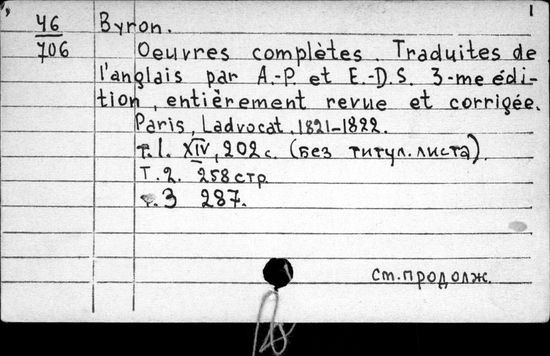 1
46 Byron.
706 Oeuvres complètes. Traduites de
l'anglais par A.-P. et E.-D.S. 3-me édi-
tion, entièrement revue et corrigée.
Paris, Ladvocat, 1821-1822.
т.1. XIV, 202 с. (без титул. листа).
Т.2. 258 стр.
т.3 287.
см. продолж.